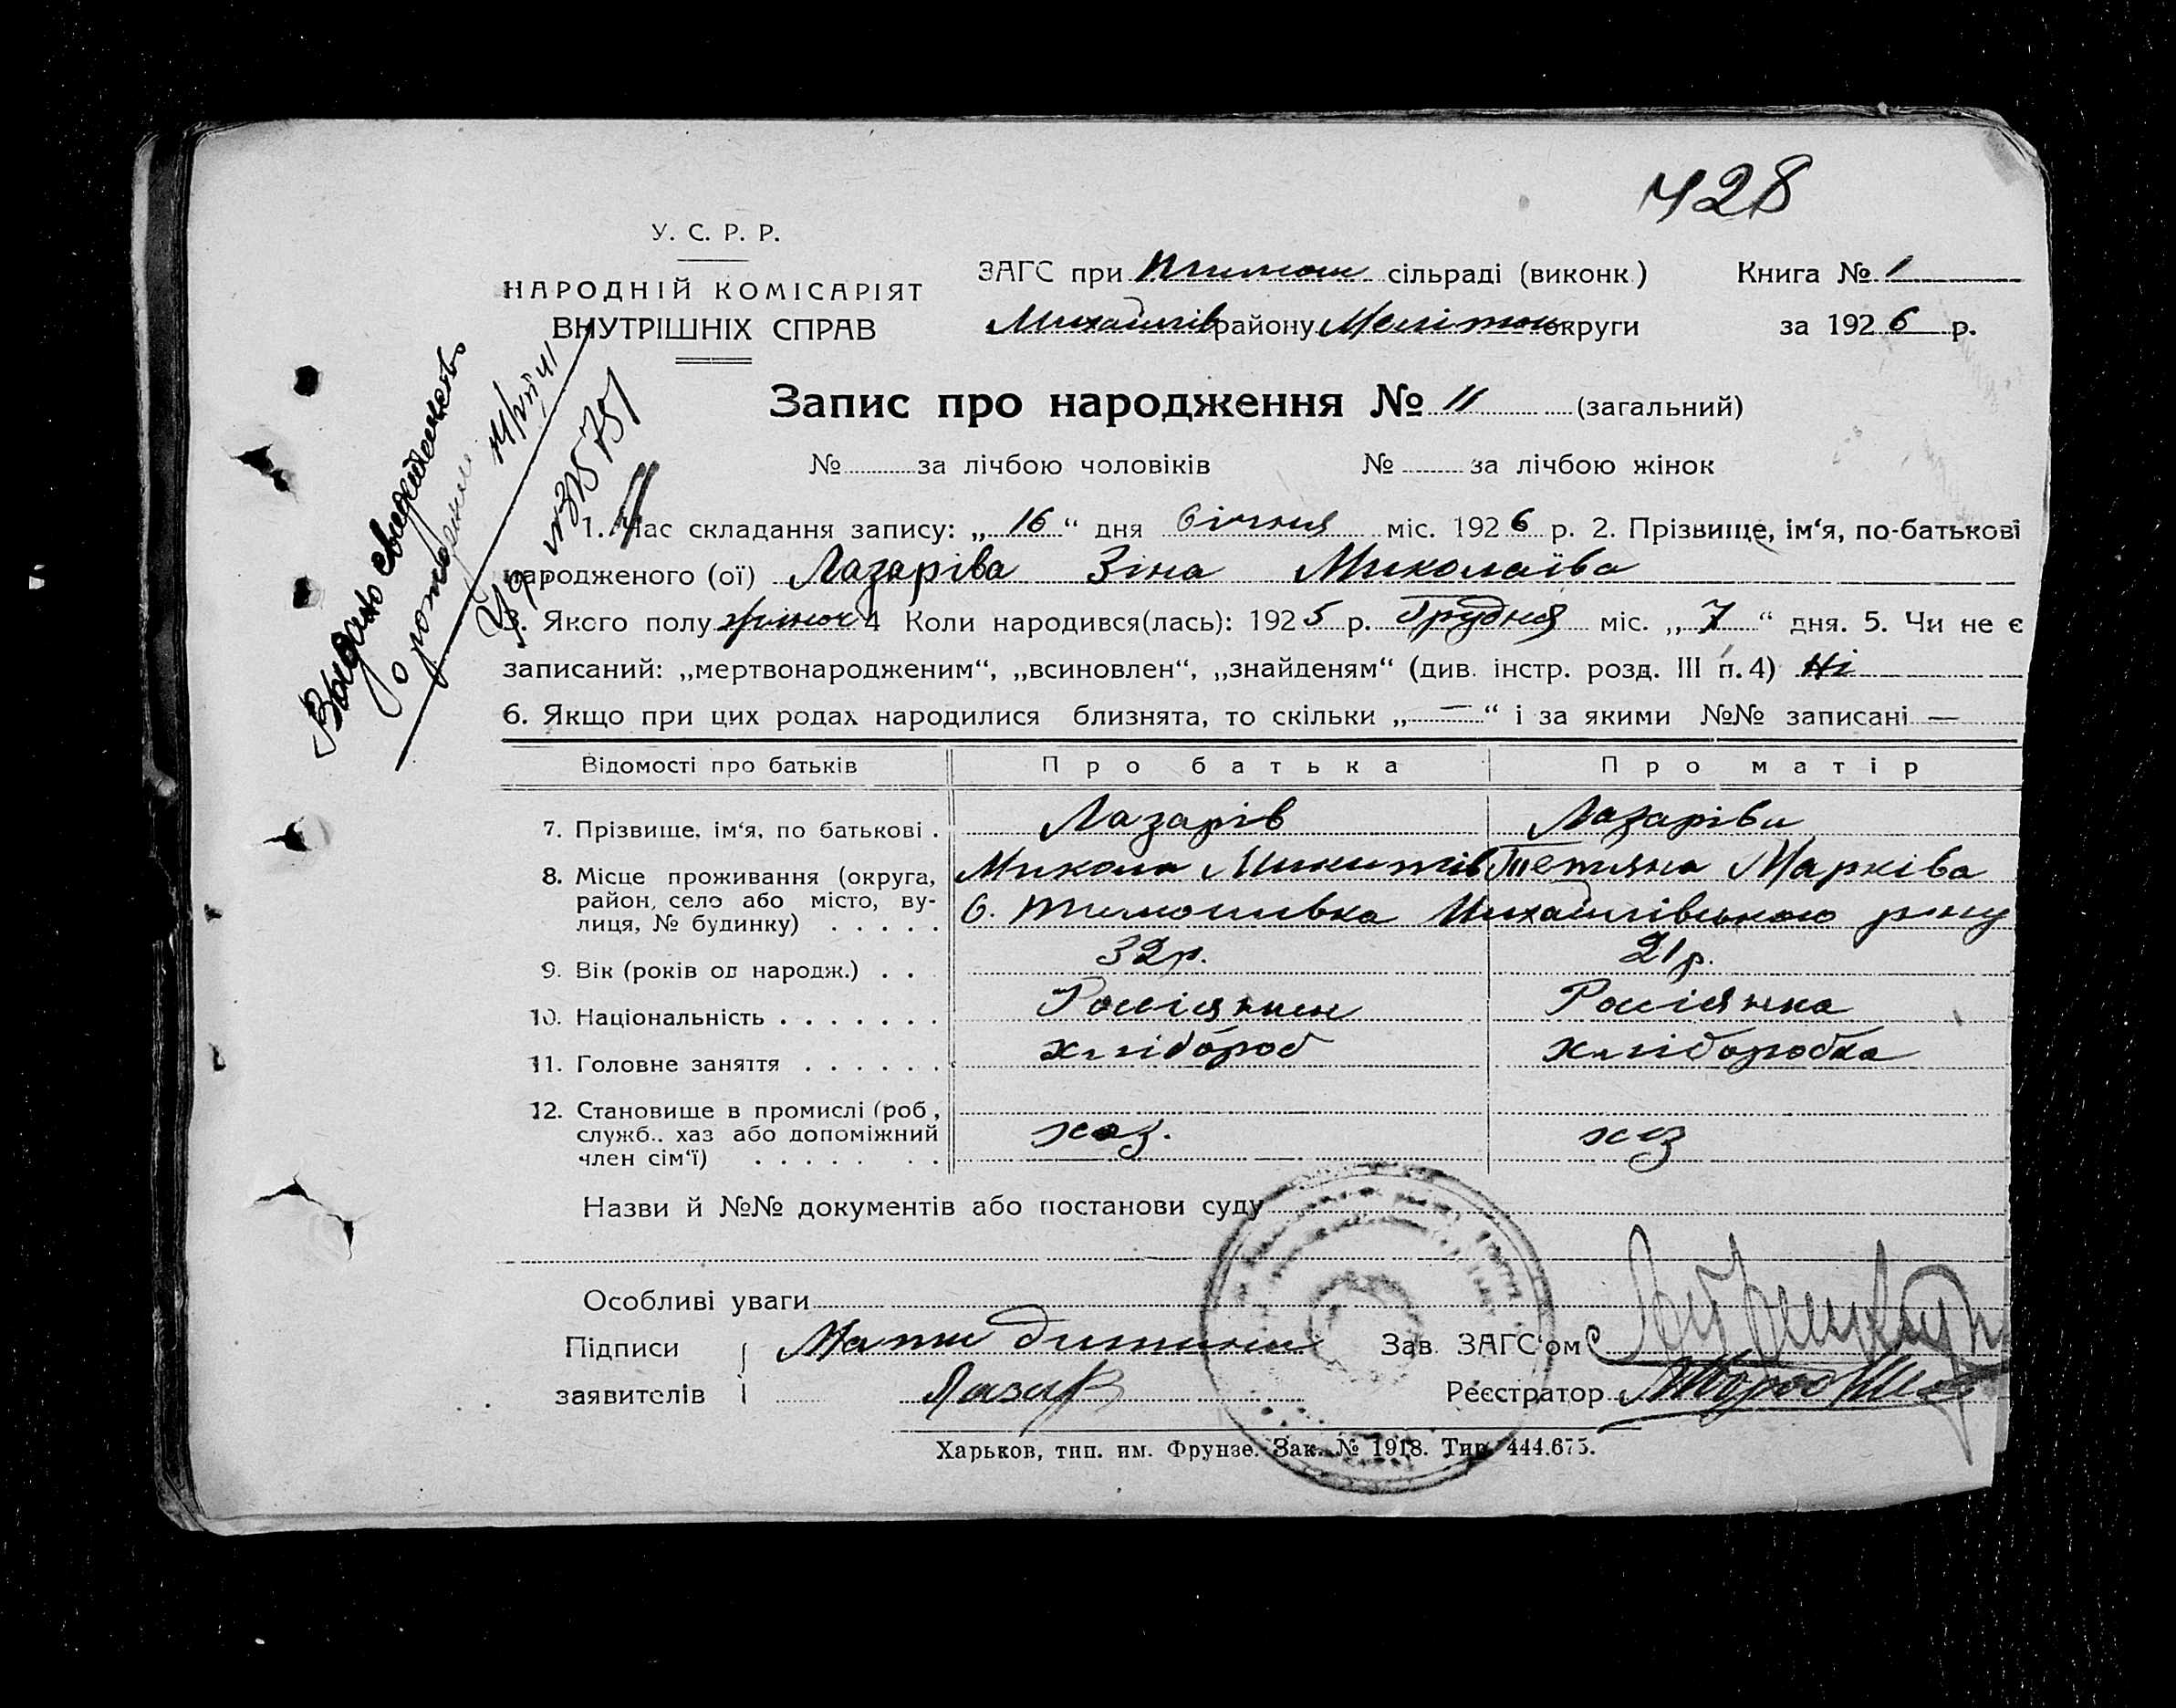 428
У. С. Р. Р.
НАРОДНІЙ КОМІСАРІЯТ
ВНУТРІШНІХ СПРАВ
ЗАГС при Тимош сільраді (виконк.) Книга № 1
Михайлів району Меліт округи за 1926 р.
Запис про народження № 11 (загальний)
№ за лічбою чоловіків № за лічбою жінок
Выдано свидетельство
о рождении
1. Час складання запису: „16“ дня Січння міс. 1926 р. 2. Прізвище, ім‘я, по-батькові
народженого (ої) Лазаріва Зіна Миколаїва
3. Якого полу жіноч 4 Коли народився(лась): 1925 р. Грудня міс. „7“ дня. 5. Чи не є
записаний: „мертвонародженим“, „всиновлен“, „знайденям“ (див. інстр. розд. III п. 4) Ні
6. Якщо при цих родах народилися близнята, то скільки „—“ і за якими №№ записані —
Відомості про батьків Про батька Про матір
7. Прізвище, ім‘я, по батькові . Лазарів Лазаріва
Микола Микитів Тетяна Марківа
8. Місце проживання (округа,
район, село або місто, ву-
лиця, № будинку) . . . . . С. Тимошивка Михайлівського р-ну
9. Вік (років од народж.) . . 32 р. 21 р.
10. Національність . . . . . . . Росіянин Росіянка
11. Головне заняття . . . . . . . хлібороб хліборобка
12. Становище в промислі (роб,
служб.. хаз або допоміжний
член сім‘ї) . . . . . . . хаз. хаз
Назви й №№ документів або постанови суду
Особливі уваги
Підписи Мати дитини Зав. ЗАГС‘ом
заявителів Лазар Реєстратор
Харьков, тип. им. Фрунзе. Зак. № 1918. Тир. 444.675.